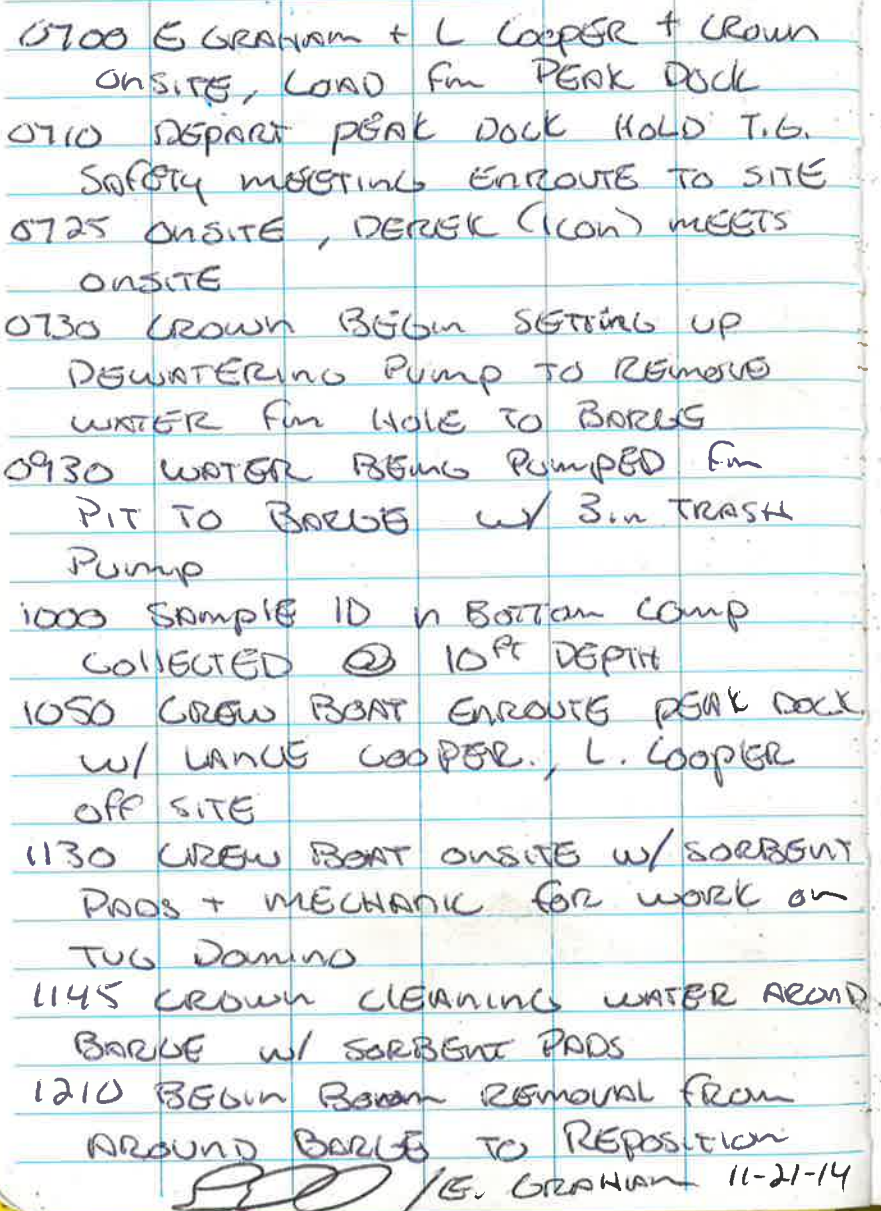 0700 E GRAHAM + L COOPER + CROWN
ONSITE, LOAD fm PEAK DOCK
0710 DEPART PEAK DOCK HOLD T.G.
SAFETY MEETING ENROUTE TO SITE
0725 ONSITE, DEREK (ICON) MEETS
ONSITE
0730 CROWN BEGIN SETTING UP
DEWATERING PUMP TO REMOVE
WATER fm HOLE TO BARGE
0930 WATER BEING PUMPED fm
PIT TO BARGE w/ 3in TRASH
PUMP
1000 SAMPLE ID BOTTOM COMP
COLLECTED @ 10ft DEPTH
1050 CREW BOAT ENROUTE PEAK DOCK
w/ LANCE COOPER., L. COOPER
OFF SITE
1130 CREW BOAT ONSITE w/ SORBENT
PADS + MECHANIC FOR WORK ON
TUG DOMINO
1145 CROWN CLEANING WATER AROUND
BARGE w/ SORBENT PADS
1210 BEGIN BOOM REMOVAL FROM
AROUND BARGE TO REPOSITION
/E. GRAHAM 11-21-14